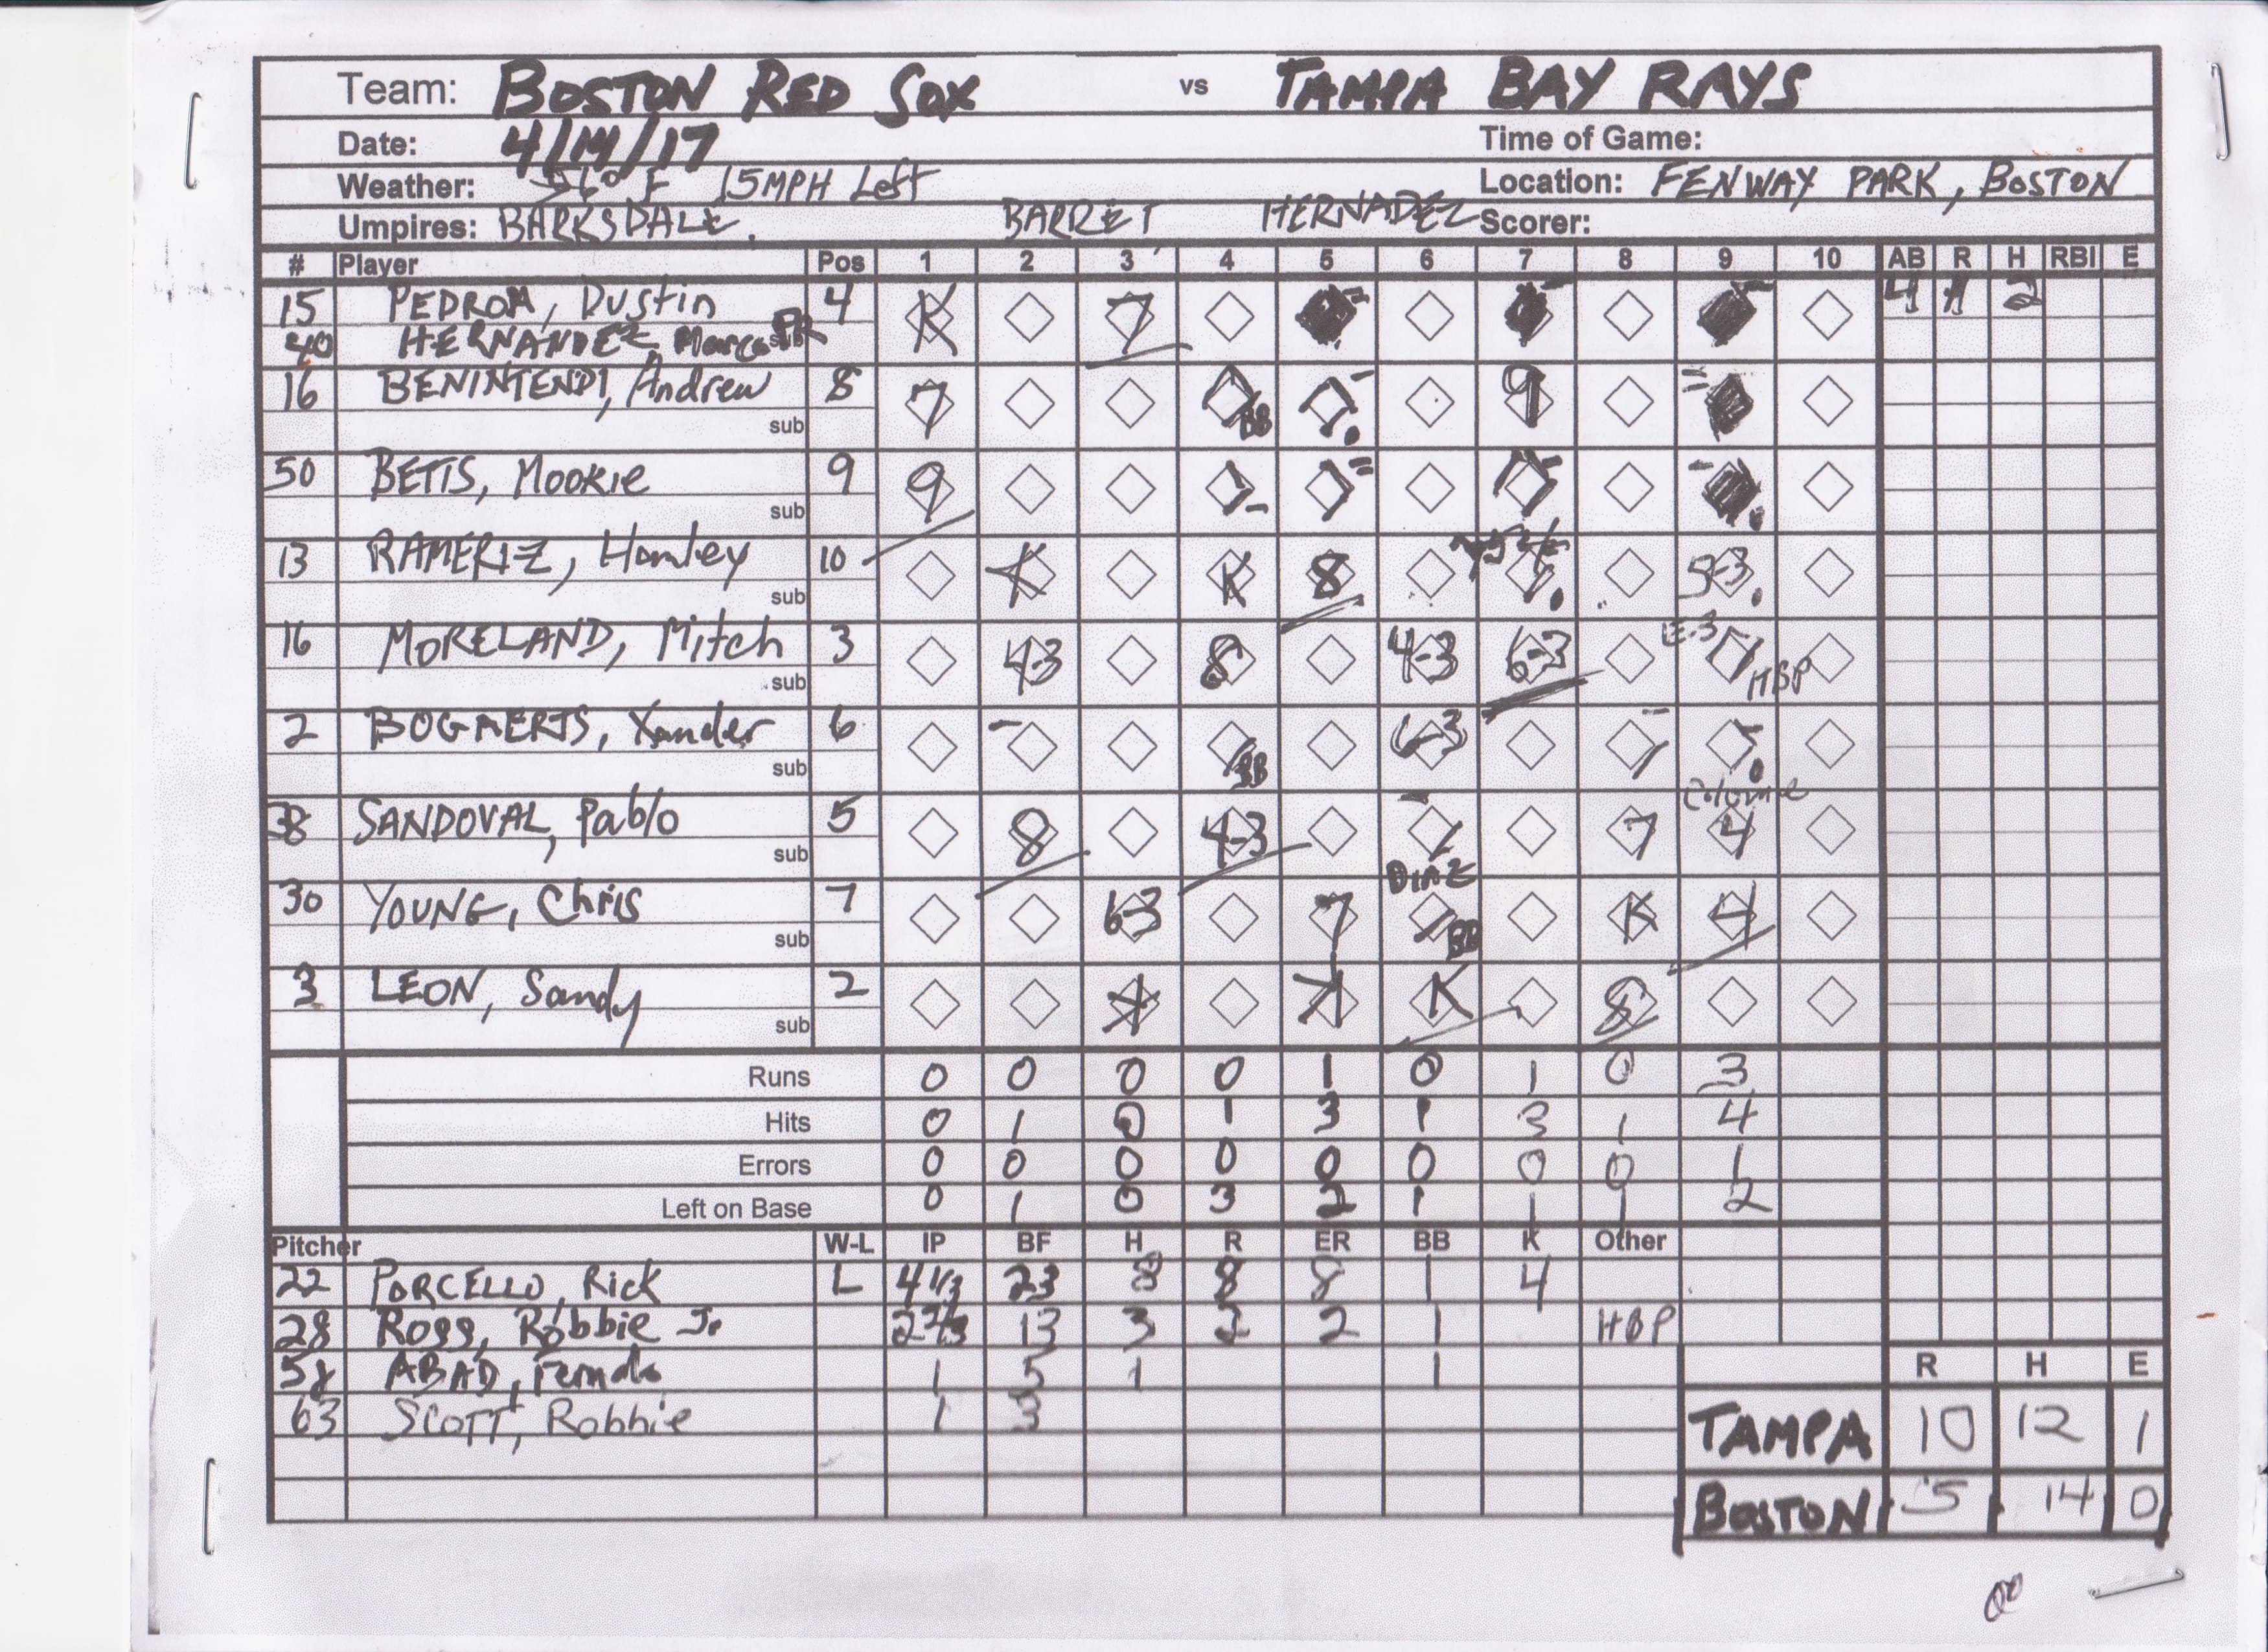 Team: BOSTON RED SOX vs TAMPA BAY RAYS
Date: 4/14/17 Time of Game:
Weather: 56° F 15MPH Left Location: FENWAY PARK, BOSTON
Umpires: BARKSDALE, BARRET HERNADEZ Scorer:
# Player Pos 1 2 3 4 5 6 7 8 9 10 AB R H RBI E
15 PEDROIA, Dustin 4 K 7 4 1 2
40 HERNANDEZ, Marco PR
16 BENINTENDI, Andrew 8 7 BB 9
sub
50 BETTS, Mookie 9 9
sub
13 RAMERIZ, Hanley 10 K K 8 5-3
sub
16 MORELAND, Mitch 3 4-3 8 4-3 6-3 E-3 HBP
sub
2 BOGAERTS, Xander 6 BB 6-3
sub
38 SANDOVAL, Pablo 5 8 4-3 7 Colome 4
sub
DIAZ
30 YOUNG, Chris 7 6-3 7 BB K 4
sub
3 LEON, Sandy 2 K K K 8
sub
Runs 0 0 0 0 1 0 1 0 3
Hits 0 1 0 1 3 1 3 1 4
Errors 0 0 0 0 0 0 0 0 1
Left on Base 0 1 0 3 2 1 1 1 2
Pitcher W-L IP BF H R ER BB K Other
22 PORCELLO, Rick L 4 1/3 23 8 8 8 1 4
28 ROSS, Robbie Jr 2 2/3 13 3 2 2 1 HBP
58 ABAD, Fernado 1 5 1 1
63 SCOTT, Robbie 1 3
R H E
TAMPA 10 12 1
BOSTON 5 14 0